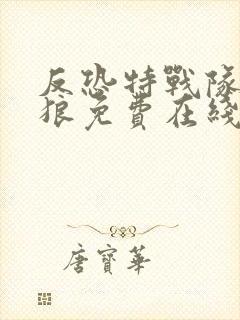 反恐特戰隊
狼免費在綫
唐寶華